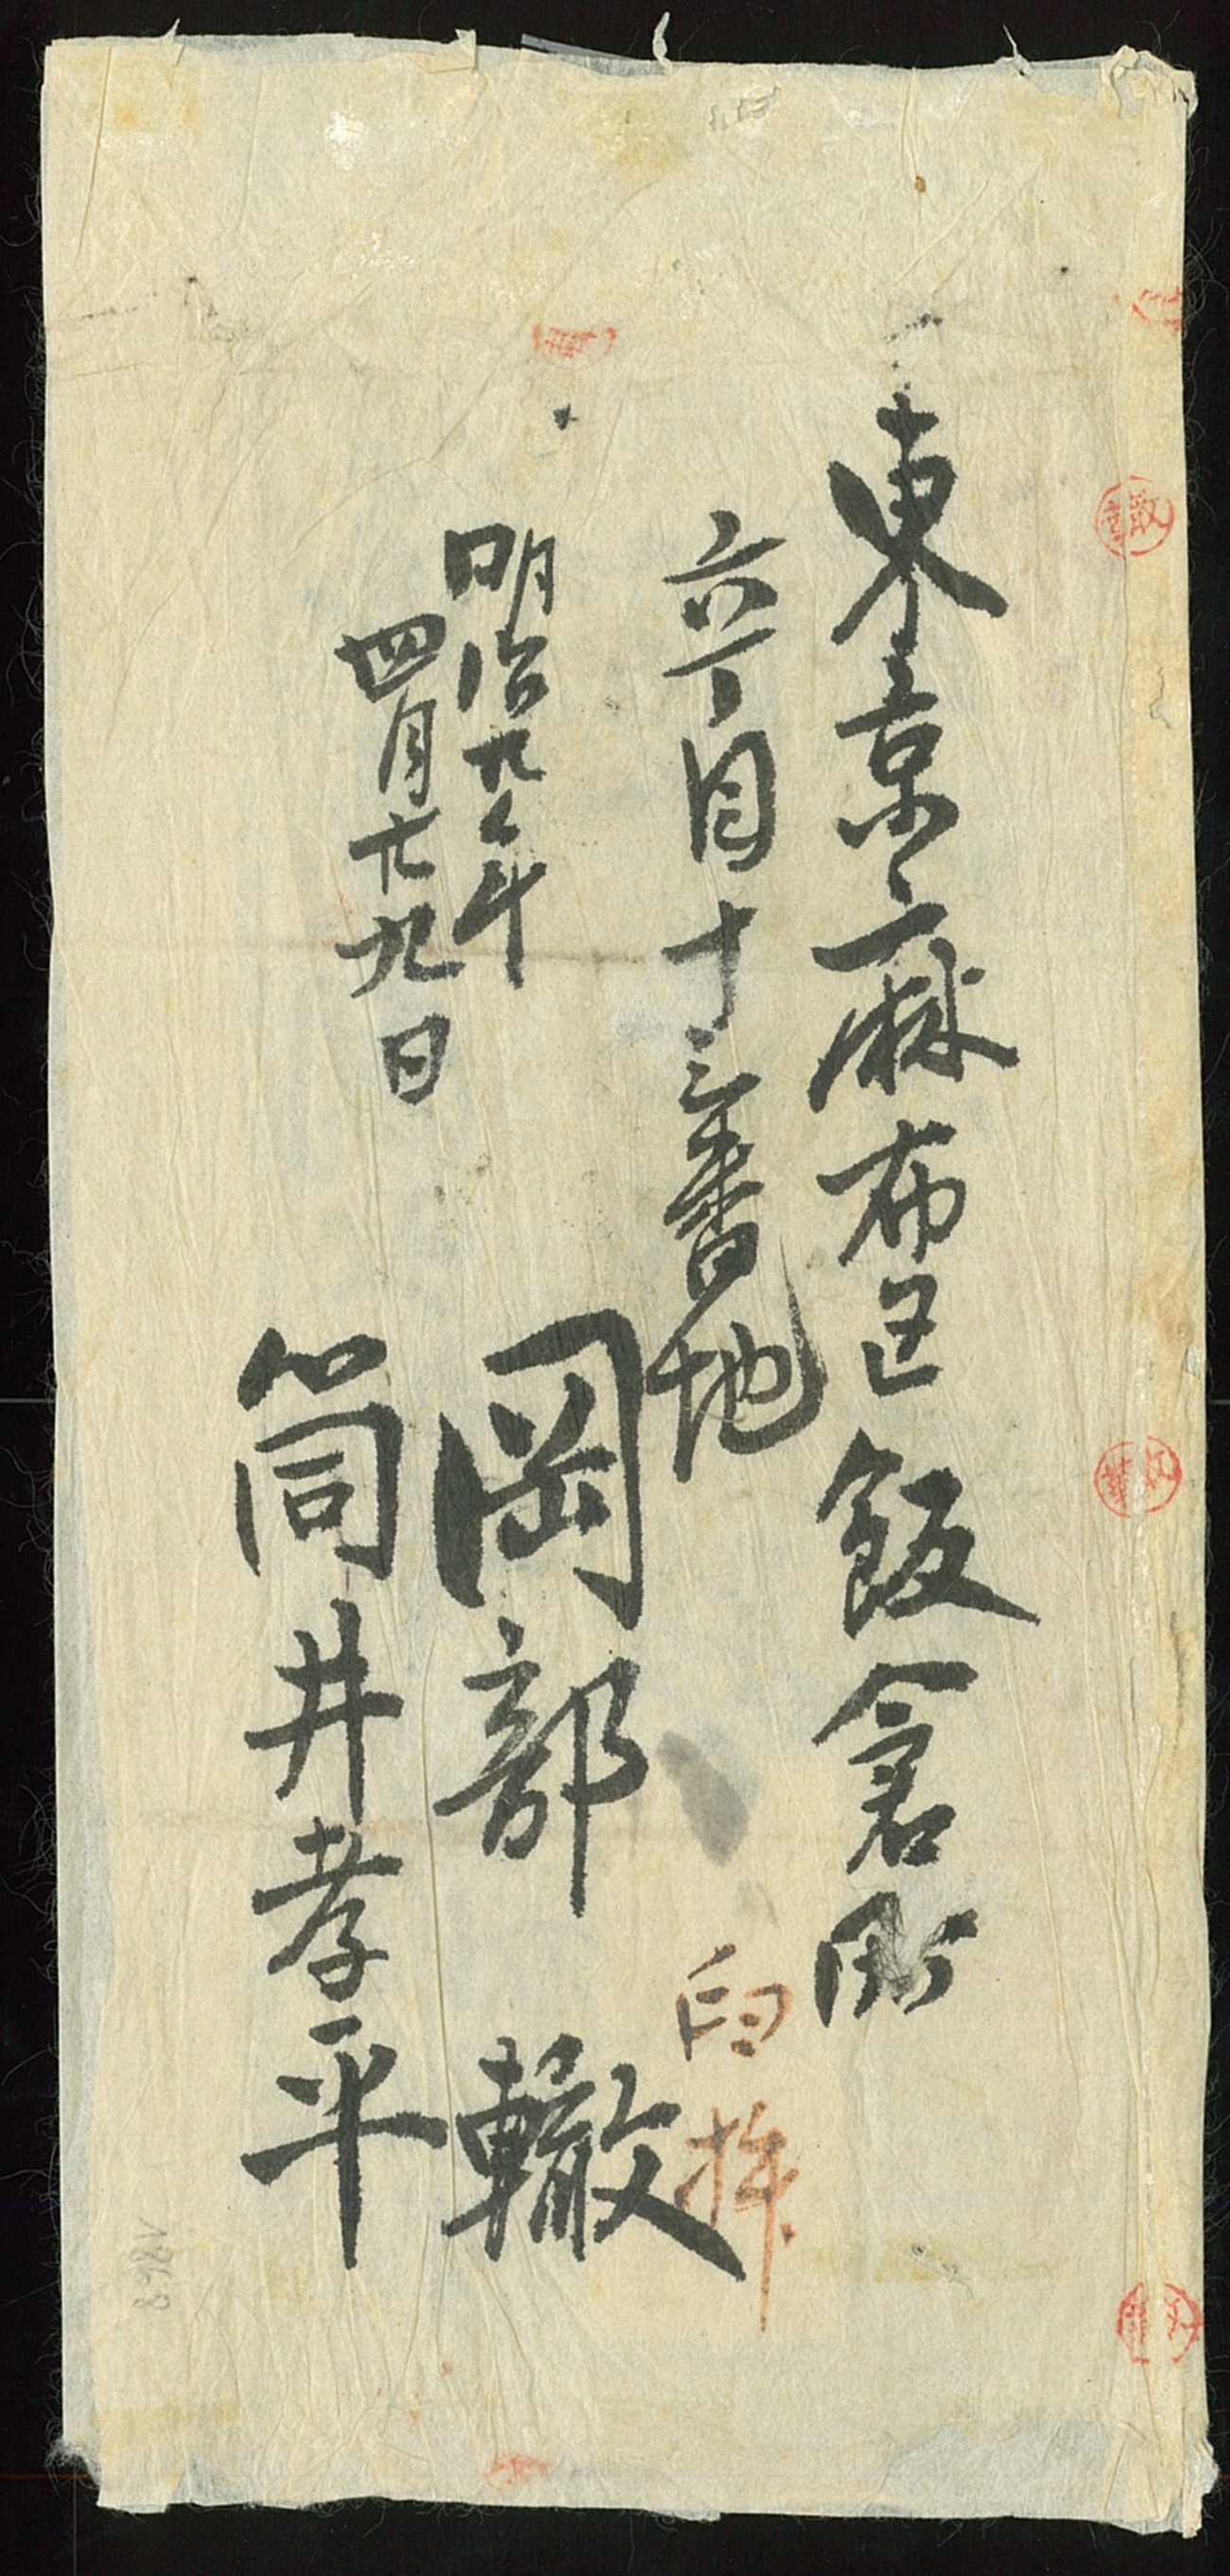 東京麻布区飯倉町
六丁目十三番地
明治九年
四月廿九日
岡部 轍
筒井孝平